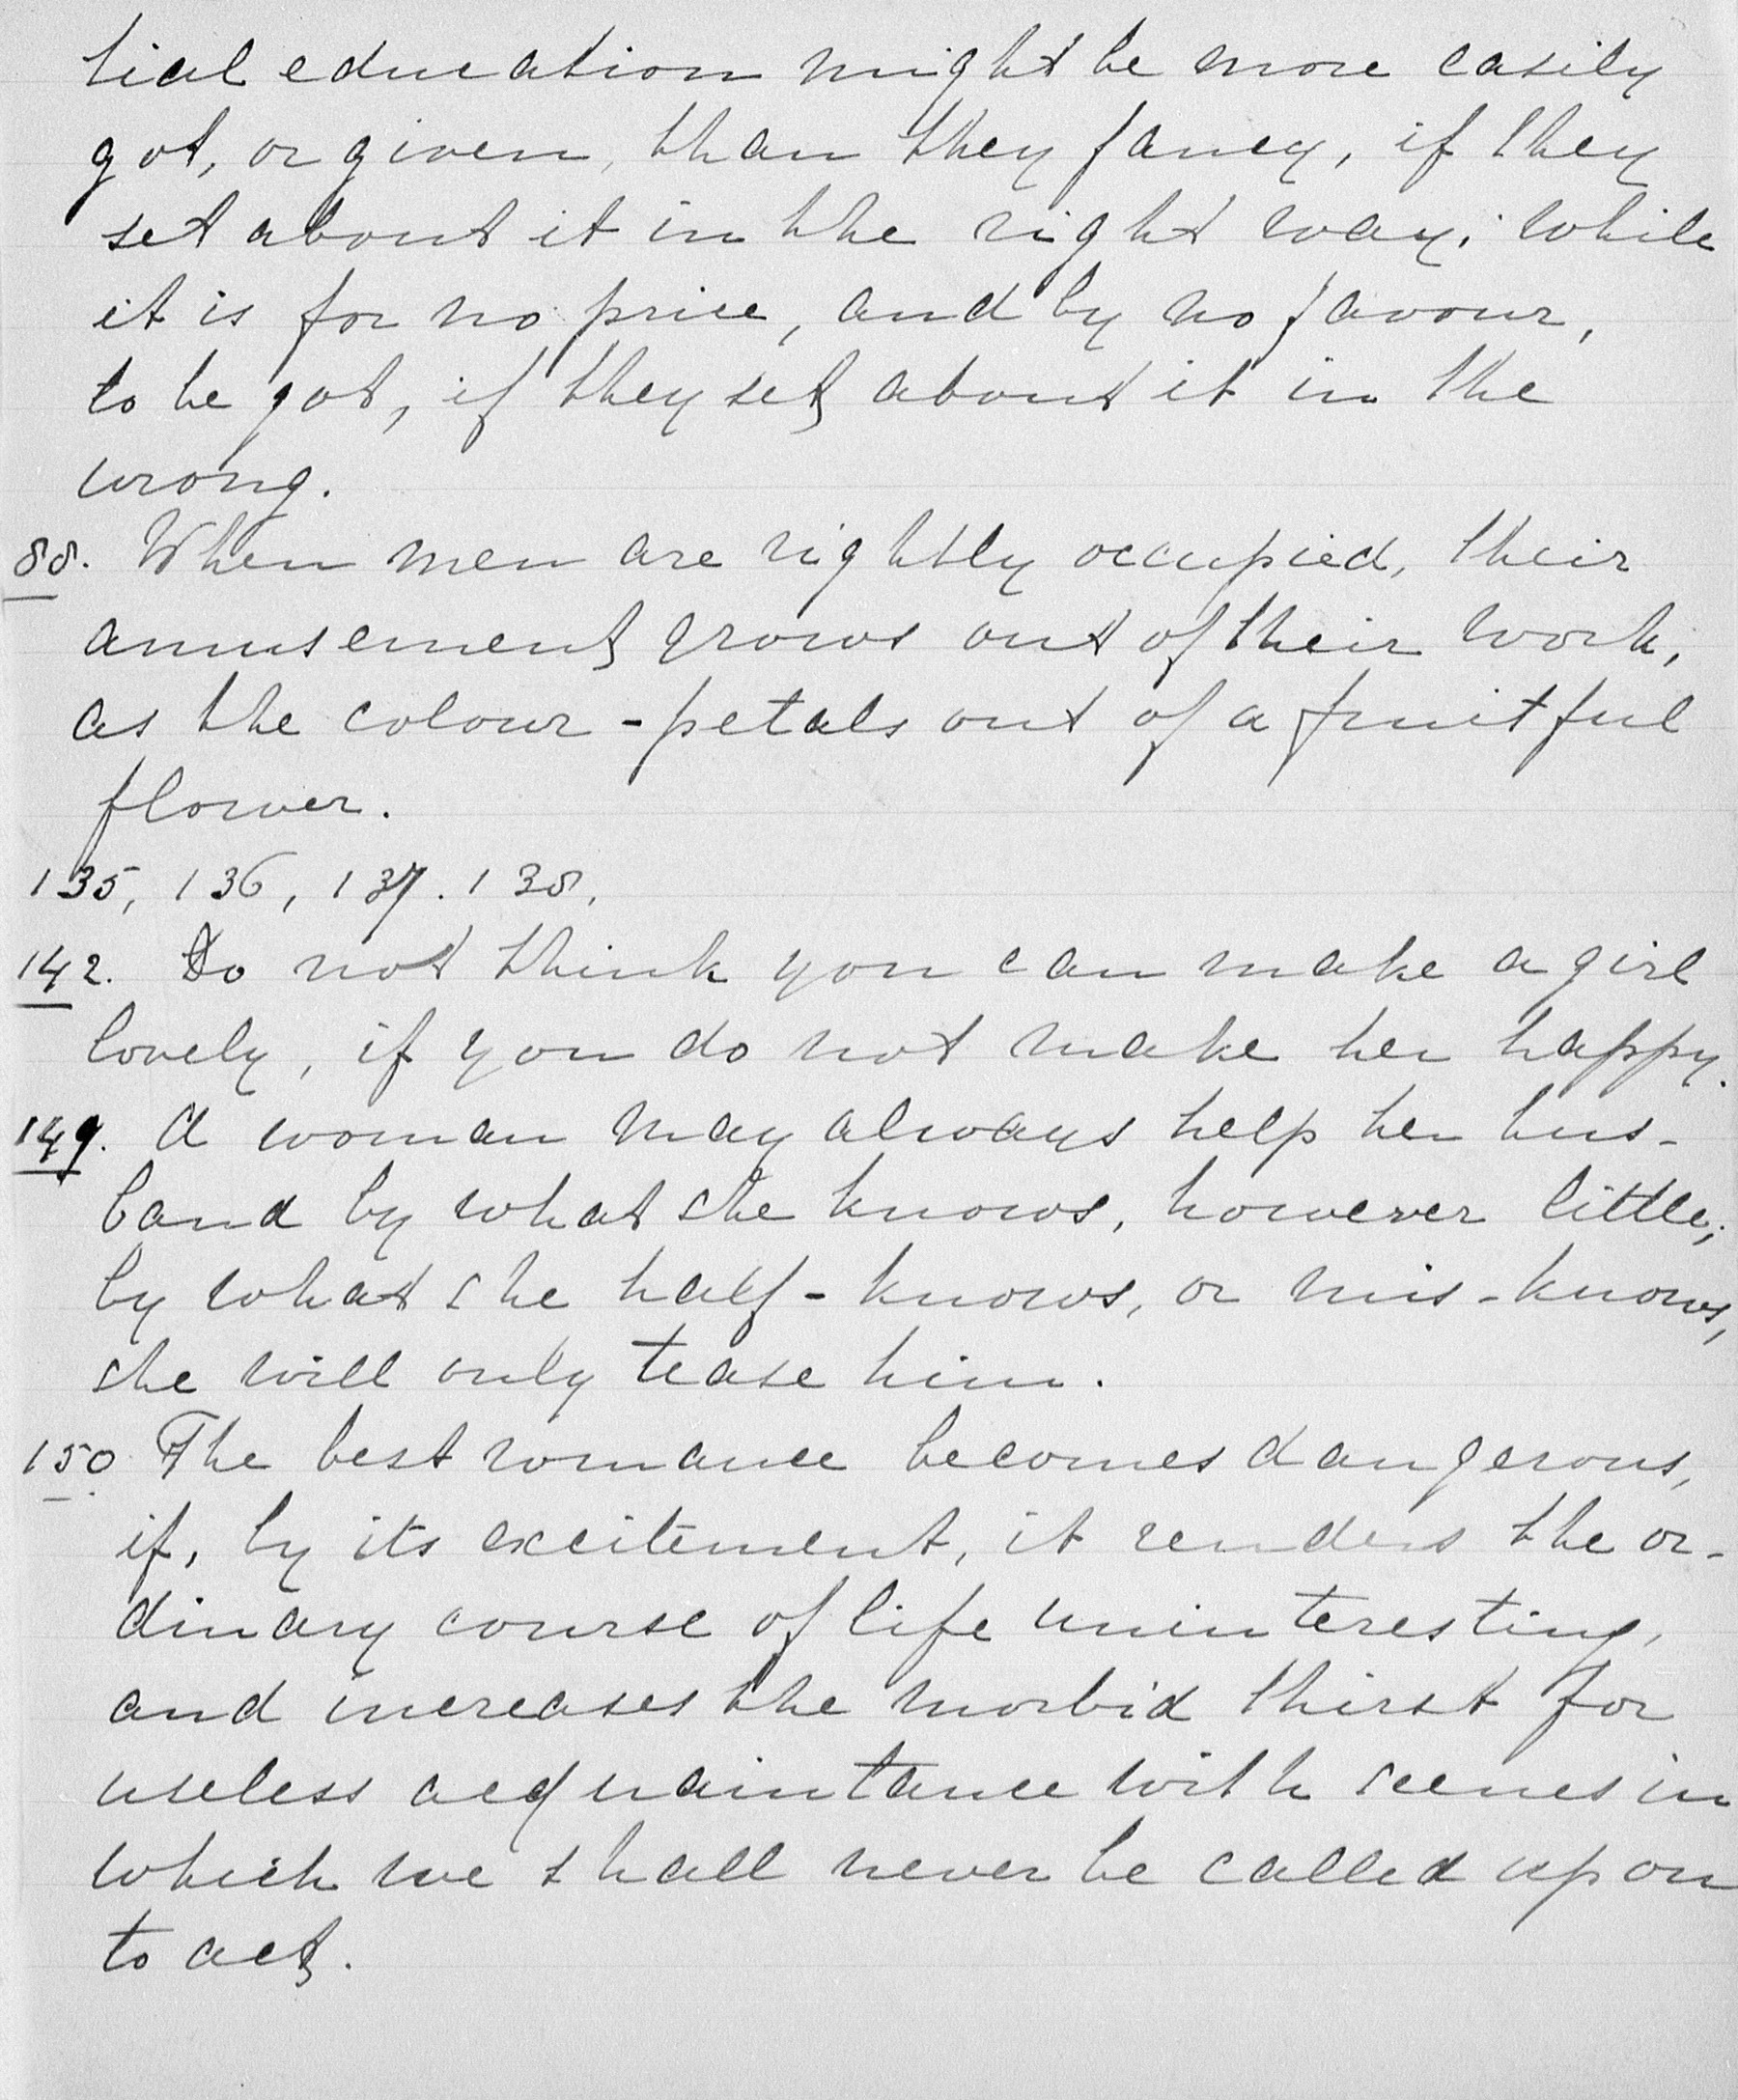 tial education might be more easily
got, or given, than they fancy, if they
set about it in the right way; while
it is for no price, and by no favour,
to be got, if they set about it in the
wrong.
88. When men are rightly occupied, their
amusement grows out of their work,
as the colour-petals out of a fruitful
flower.
135, 136, 137. 138.
142. Do not think you can make a girl
lovely, if you do not make her happy.
149. A woman may always help her hus-
band by what she knows, however little;
by what she half-knows, or mis-knows,
she will only tease him.
150 The best romance becomes dangerous,
if, by its excitement, it renders the or-
dinary course of life uninteresting,
and increases the morbid thirst for
useless acquaintance with scenes in
which we shall never be called upon
to act.